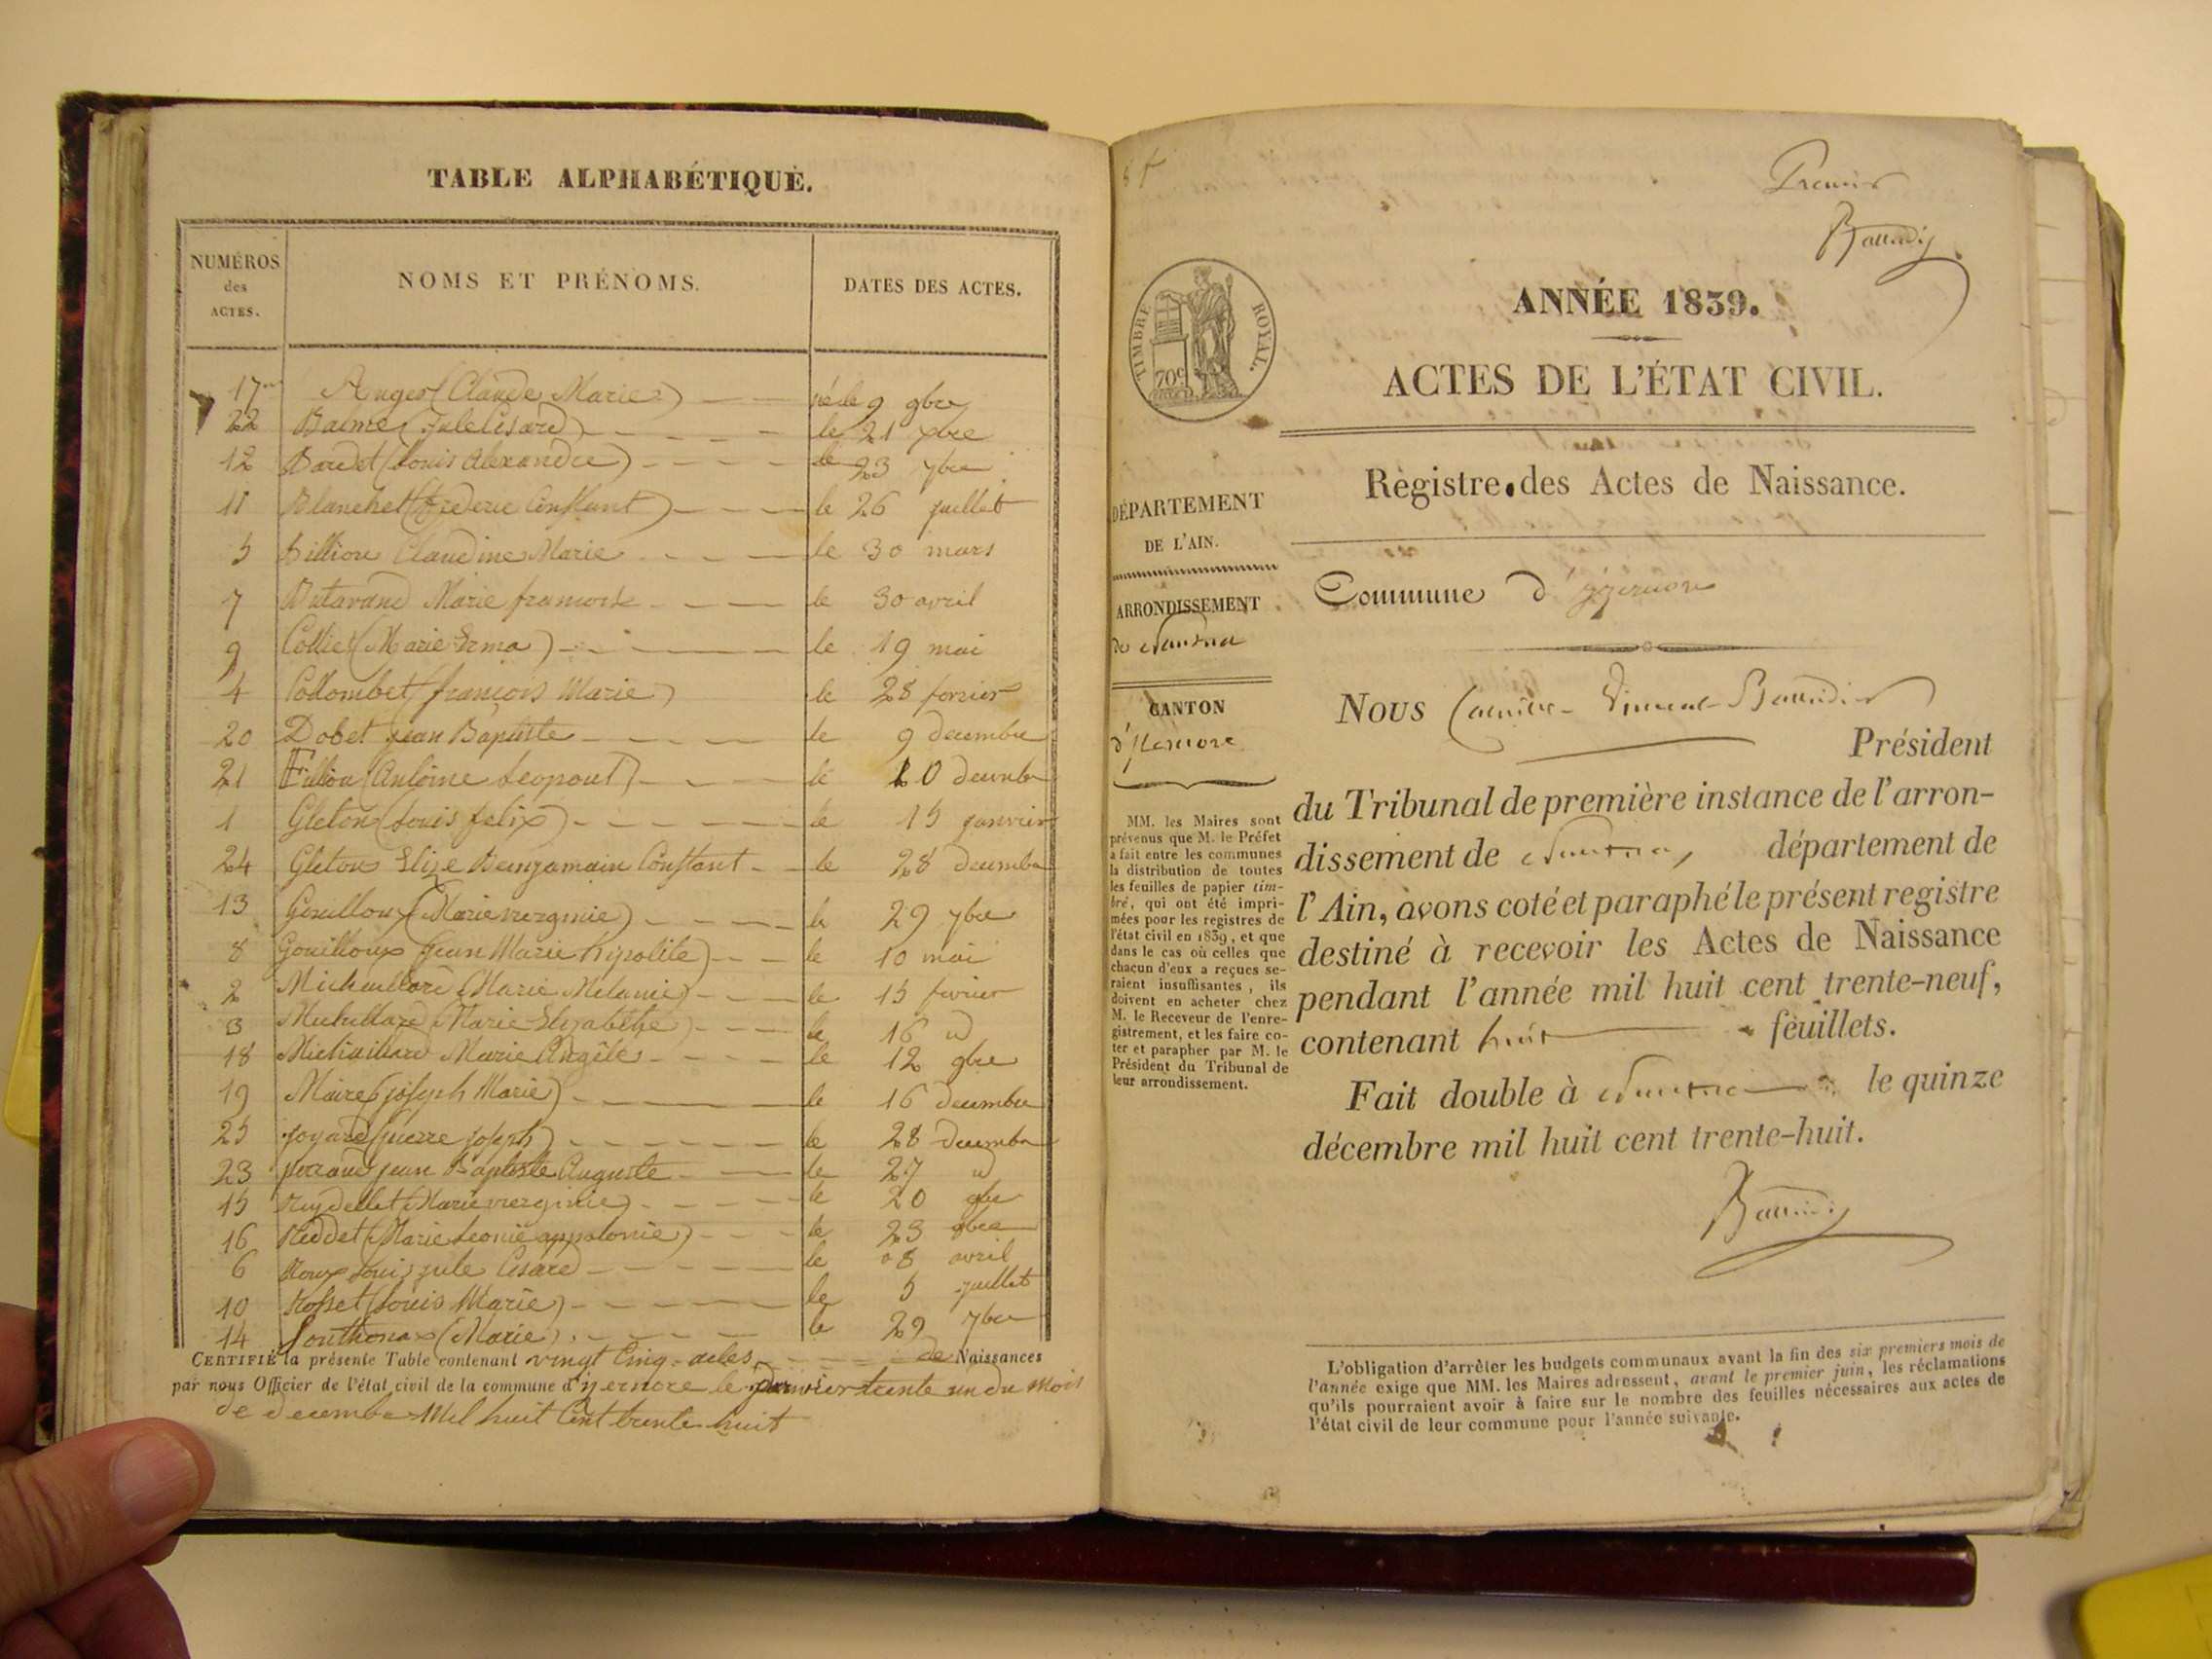 TABLE ALPHABÉTIQUE.
NUMÉROS des ACTES. NOMS ET PRÉNOMS. DATES DES ACTES.
17 Auger (Claude Marie) né le 9 9bre
22 Balme (Jule Césard) le 21 xbre
12 Bardet (Louis Alexandre) le 23 7bre
11 Blanchet (frederic Constant) le 26 juillet
5 billion Claudine Marie le 30 mars
7 Butavand Marie francoise le 30 avril
9 Collet (Marie Erma) le 19 mai
4 Collombet (francois Marie) le 28 fevrier
20 Dobet jean Baptiste le 9 decembre
21 (Antoine Leopout) le 20 decembre
1 Gleton (Louis felix) le 15 janvier
24 Gleton Elize Benjamain Constant le 28 decembre
13 Gouilloux (Marie virginie) le 29 7bre
8 Gouilloux (jean Marie hipolite) le 10 mai
2 Michaillard (Marie Melanie) le 15 fevrier
3 Michillard (Marie Elizabethe) le 16 id
18 Michaillard Marie Angéle le 12 9bre
19 Maire (joseph Marie) le 16 decembre
25 joyard (pierre joseph) le 28 decembre
23 perraud jean Baptiste Auguste le 27 id
15 Reydellet (Marie virginie) le 20 9bre
16 Reddet (Marie Leonie appolonie) le 23 9bre
6 Roux Louis jule Césard le 8 avril
10 Rosset (Louis Marie) le 5 juillet
14 Sonthonax (Marie) le 29 7bre
CERTIFIÉ la présente Table contenant vingt Cinq actes de Naissances
par nous Officier de l'état civil de la commune d'yzernore le trente un du mois
de decembre Mil huit Cent trente huit
Premier
Baudin
TIMBRE ROYAL.
70c
ANNÉE 1839.
ACTES DE L'ÉTAT CIVIL.
Règistre des Actes de Naissance.
DÉPARTEMENT
DE L'AIN.
ARRONDISSEMENT
de Nantua
CANTON
d'Izernore
MM. les Maires sont
prévenus que M. le Préfet
a fait entre les communes
la distribution de toutes
les feuilles de papier tim-
bré, qui ont été impri-
mées pour les registres de
l'état civil en 1839, et que
dans le cas où celles que
chacun d'eux a reçues se-
raient insuffisantes, ils
doivent en acheter chez
M. le Receveur de l'enre-
gistrement, et les faire co-
ter et parapher par M. le
Président du Tribunal de
leur arrondissement.
Commune d'yzernore
Nous
Président
du Tribunal de première instance de l'arron-
dissement de Nantua, département de
l'Ain, avons coté et paraphé le présent registre
destiné à recevoir les Actes de Naissance
pendant l'année mil huit cent trente-neuf,
contenant huit feuillets.
Fait double à Nantua le quinze
décembre mil huit cent trente-huit.
L'obligation d'arrêter les budgets communaux avant la fin des six premiers mois de
l'année exige que MM. les Maires adressent, avant le premier juin, les réclamations
qu'ils pourraient avoir à faire sur le nombre des feuilles nécessaires aux actes de
l'état civil de leur commune pour l'année suivante.